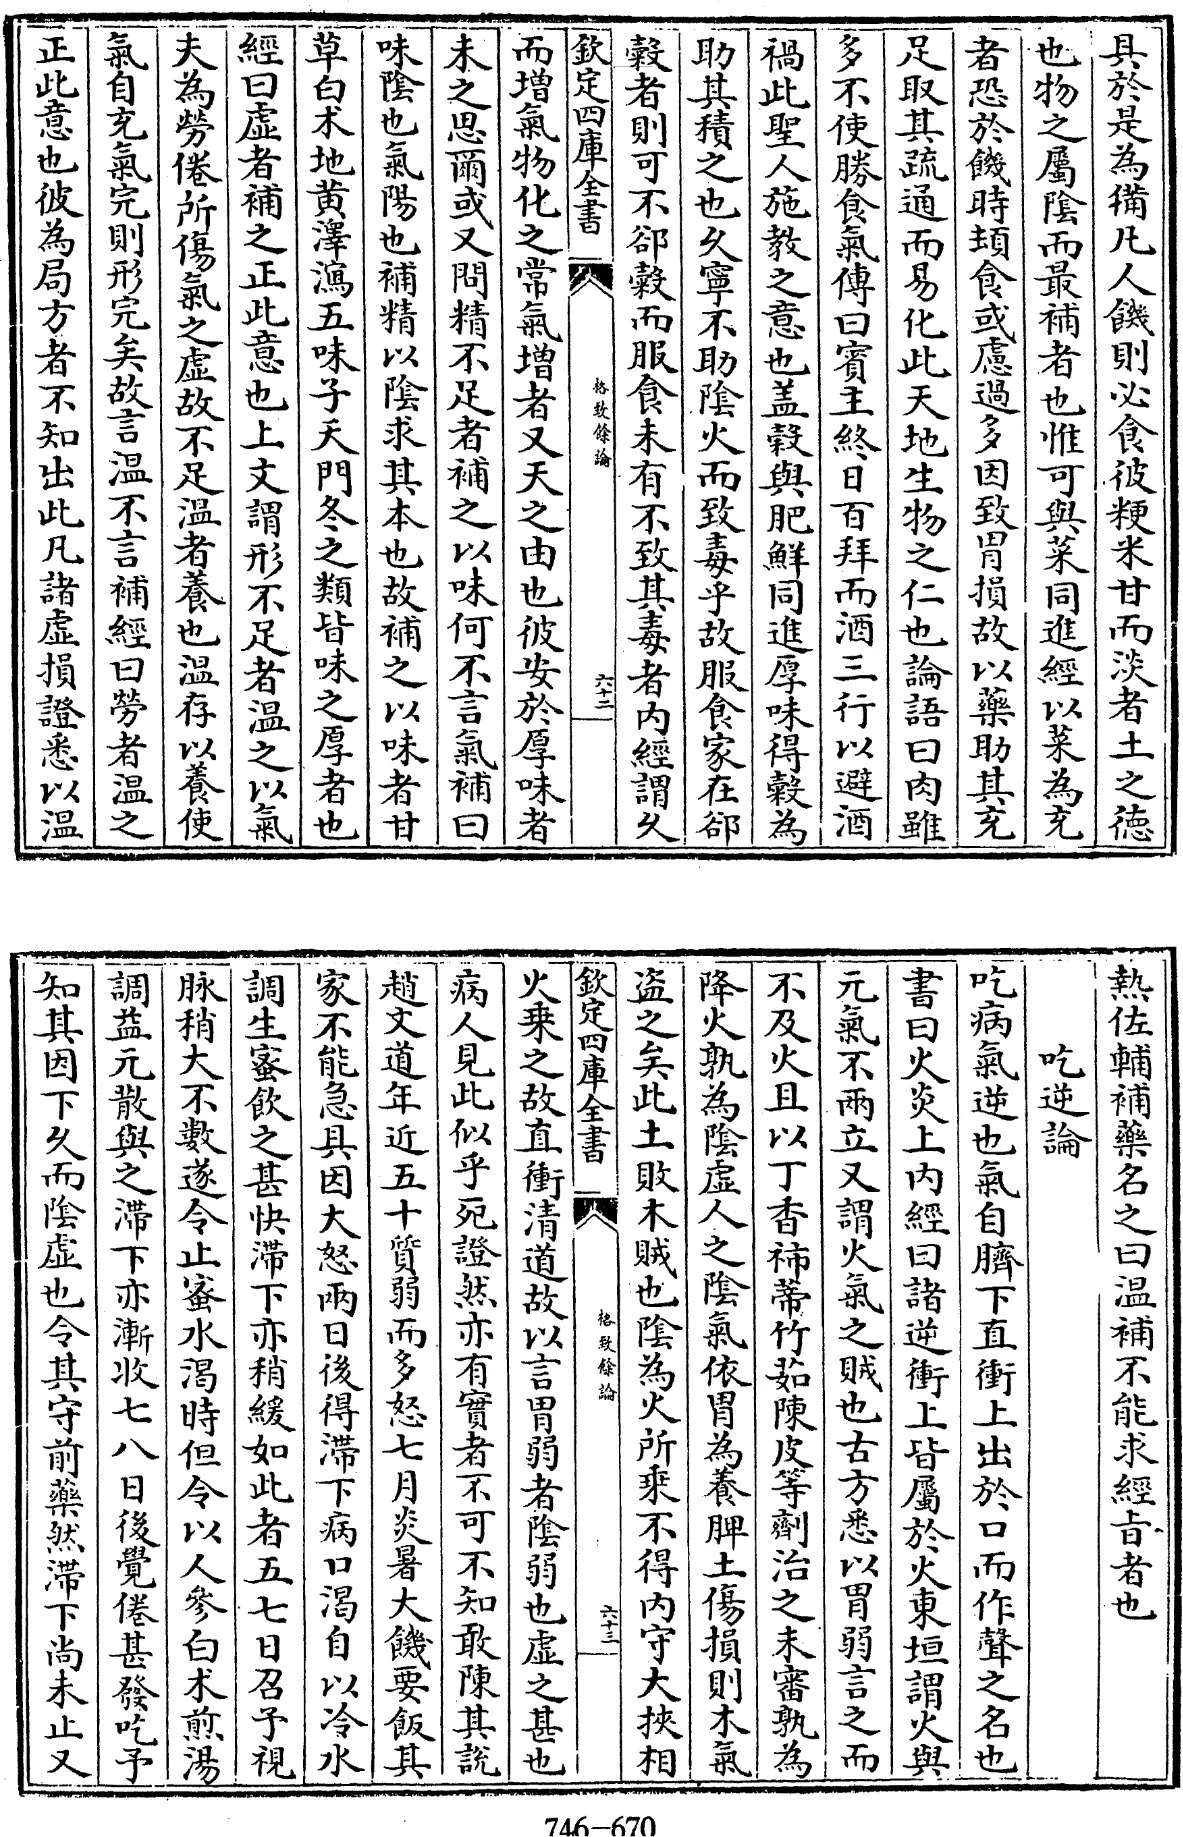 具於是為備凡人饑則必食彼粳米甘而淡者土之徳
也物之屬陰而最補者也惟可與菜同進經以菜為充
者恐於饑時頓食或慮過多因致胃損故以藥助其充
足取其疏通而易化此天地生物之仁也論語曰肉雖
多不使勝食氣傳曰賓主終日百拜而酒三行以避酒
禍此聖人施教之意也盖穀與肥鮮同進厚味得穀為
助其積之也久寧不助陰火而致毒乎故服食家在郤
穀者則可不郤穀而服食未有不致其毒者内經謂久
欽定四庫全書
格致餘論
六十二
而增氣物化之常氣增者又天之由也彼安於厚味者
未之思爾或又問精不足者補之以味何不言氣補曰
味陰也氣陽也補精以陰求其本也故補之以味者甘
草白术地黄澤瀉五味子天門冬之類皆味之厚者也
經曰虛者補之正此意也上文謂形不足者温之以氣
夫為勞倦所傷氣之虛故不足温者養也温存以養使
氣自充氣完則形完矣故言温不言補經曰勞者温之
正此意也彼為局方者不知出此凡諸虛損證悉以温
熱佐輔補藥名之曰温補不能求經㫖者也
吃逆論
吃病氣逆也氣自臍下直衝上出於口而作聲之名也
書曰火炎上内經曰諸逆衝上皆屬於火東垣謂火與
元氣不兩立又謂火氣之賊也古方悉以胃弱言之而
不及火且以丁香柿蒂竹茹陳皮等劑治之未審孰為
降火孰為陰虛人之陰氣依胃為養脾土傷損則木氣
盗之矣此土敗木賊也陰為火所乗不得内守大挾相
欽定四庫全書
格致餘論
六十三
火乗之故直衝清道故以言胃弱者陰弱也虛之甚也
病人見此似乎死證然亦有實者不可不知敢陳其説
趙文道年近五十質弱而多怒七月炎暑大饑要飯其
家不能急具因大怒兩日後得滯下病口渴自以冷水
調生蜜飲之甚快滯下亦稍緩如此者五七日召予視
脉稍大不數遂令止蜜水渴時但令以人參白术煎湯
調益元散與之滯下亦漸收七八日後覺倦甚發吃予
知其因下久而陰虛也令其守前藥然滯下尚未止又
746—670